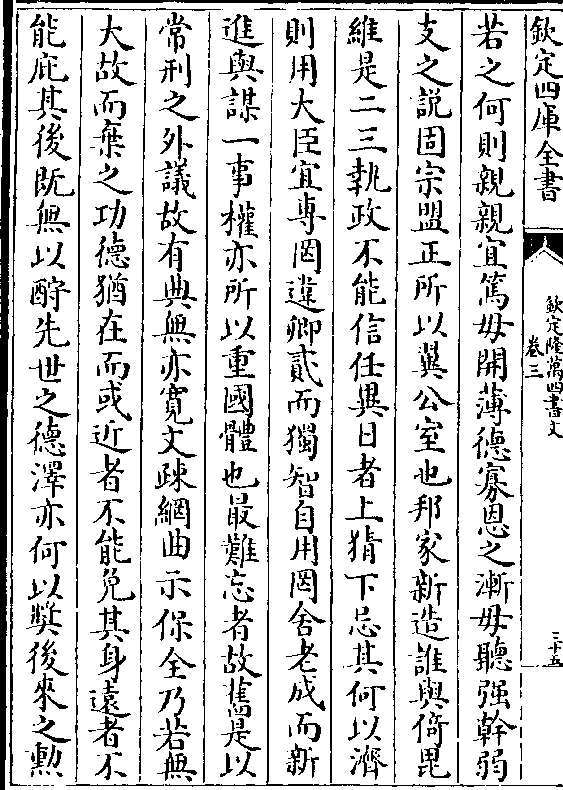 欽定四庫全書
欽定隆萬四書文
卷三
三十五
若之何則親親宜篤毋開薄德寡恩之漸毋聽强幹弱
支之説固宗盟正所以翼公室也邦家新造誰與倚毘
維是二三執政不能信任異日者上猜下忌其何以濟
則用大臣宜專罔違卿貳而獨智自用罔舍老成而新
進與謀一事權亦所以重國體也最難忘者故舊是以
常刑之外議故有典無亦寛文疎網曲示保全乃若無
大故而棄之功德猶在而或近者不能免其身遠者不
能庇其後既無以酧先世之德澤亦何以奬後來之勲